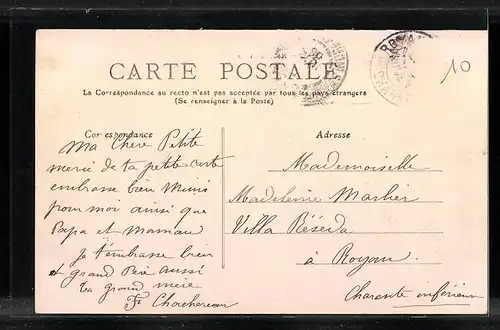 CARTE POSTALE
La Correspondance au recto n'est pas acceptée par tous les pays étrangers
(Se renseigner à la Poste)
10
Correspondance
Ma Chere Petite
merci de ta petite carte
embrasse bien Mimi
pour moi ainsi que
Papa et Maman
je t'embrasse bien
et grand Père aussi
ta grand mere
Adresse
Mademoiselle
Madeleine Marlier
Villa Réséda
à Royan
Charente inférieure